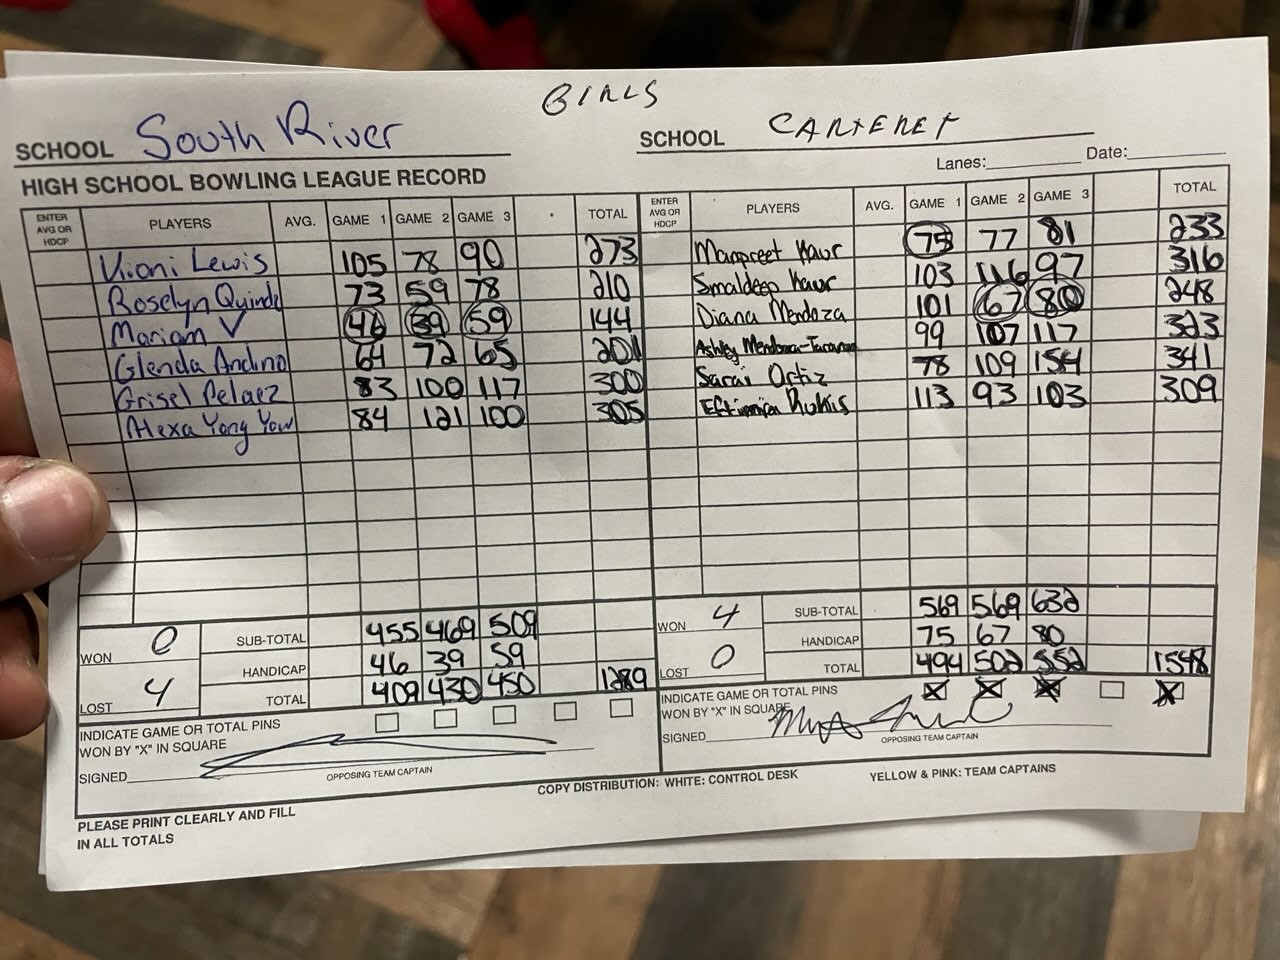 GIRLS
SCHOOL South River
SCHOOL CARTERET
HIGH SCHOOL BOWLING LEAGUE RECORD
Lanes: Date:
ENTER AVG OR HDCP PLAYERS AVG. GAME 1 GAME 2 GAME 3 TOTAL
Vioni Lewis 105 78 90 273
Roselyn Quinde 73 59 78 210
Mariam V 46 39 59 144
Glenda Andino 64 72 65 201
Grisel Pelaez 83 100 117 300
Alexa Yong Yow 84 121 100 305
WON 0 SUB-TOTAL 455 469 509
HANDICAP 46 39 59
LOST 4 TOTAL 409 430 450 1289
INDICATE GAME OR TOTAL PINS
WON BY "X" IN SQUARE
SIGNED
OPPOSING TEAM CAPTAIN
ENTER AVG OR HDCP PLAYERS AVG. GAME 1 GAME 2 GAME 3 TOTAL
Manpreet Kaur 75 77 81 233
Smaldeep Kaur 103 116 97 316
Diana Mendoza 101 67 80 248
Ashley Mendoza 99 107 117 323
Sarai Ortiz 78 109 154 341
113 93 103 309
WON 4 SUB-TOTAL 569 569 632
HANDICAP 75 67 80
LOST 0 TOTAL 494 502 552 1548
INDICATE GAME OR TOTAL PINS
WON BY "X" IN SQUARE X X X X
SIGNED
OPPOSING TEAM CAPTAIN
COPY DISTRIBUTION: WHITE: CONTROL DESK YELLOW & PINK: TEAM CAPTAINS
PLEASE PRINT CLEARLY AND FILL
IN ALL TOTALS